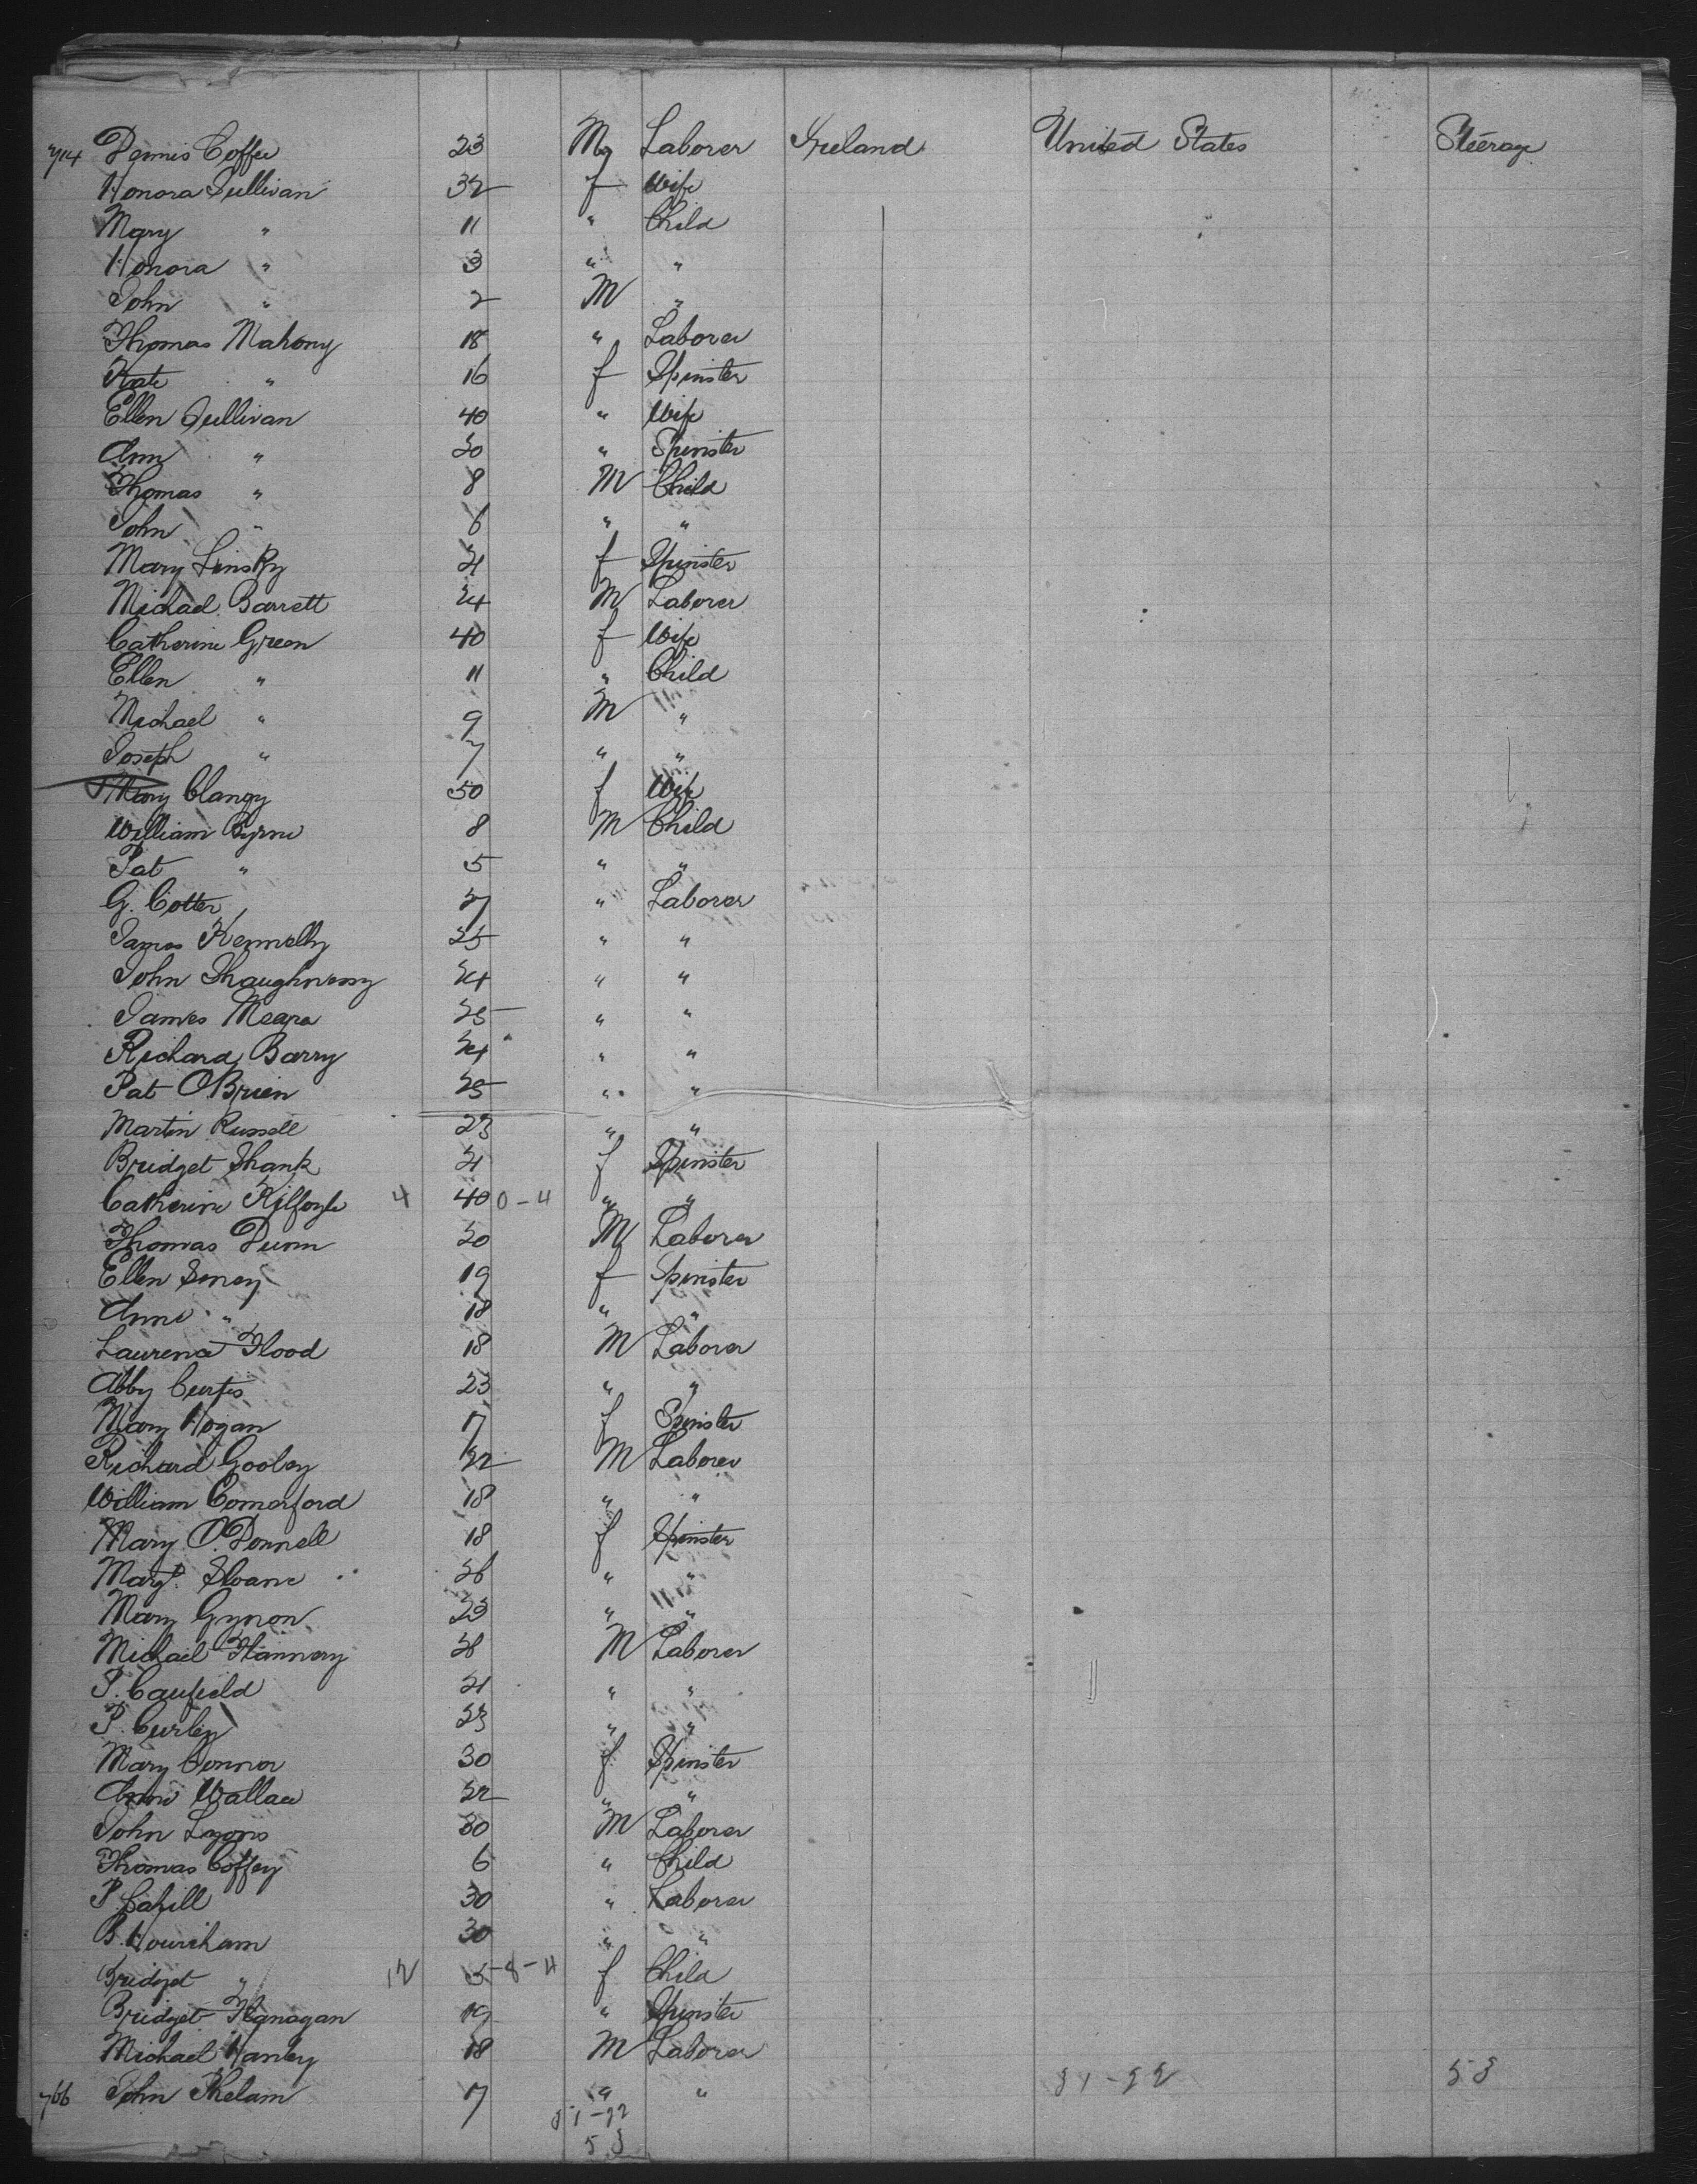 714 Dennis Coffee 23 M Laborer Ireland United States Steerage
Honora Sullivan 32 f Wife
Mary " 11 " Child
Honora " 3 " "
John " 2 M "
Thomas Mahony 18 " Laborer
Kate " 16 f Spinster
Ellen Sullivan 40 " Wife
Ann " 20 " Spinster
Thomas " 8 M Child
John " 6 " "
Mary Linsky 21 f Spinster
Michael Barrett 24 M Laborer
Catherine Green 40 f Wife
Ellen " 11 " Child
Michael " 9 M "
Joseph " 7 " "
Mary Clancy 50 f Wife
William Byrne 8 M Child
Pat " 5 " "
G. Cotter 27 " Laborer
James Kennelly 25 " "
John Shaughnessy 24 " "
James Meara 25 " "
Richard Barry 24 " "
Pat O'Brien 25 " "
Martin Russell 23 " "
Bridget Shank 21 f Spinster
Catherine Kilfoyle 4 40 0-4 " "
Thomas Dunn 20 M Laborer
Ellen 19 f Spinster
Anne " 18 " "
Laurence Flood 18 M Laborer
Abby Curtis 23 " "
Mary Hogan 17 f Spinster
Richard Gooley 22 M Laborer
William Comerford 18 " "
Mary O'Donnell 18 f Spinster
Margt. Sloane 26 " "
Mary Gynon 23 " "
Michael Flannery 26 M Laborer
P. Caufield 21 " "
P. Curley 23 " "
Mary Connor 30 f Spinster
Anne Wallace 22 " "
John Lyons 30 M Laborer
Thomas Coffey 6 " Child
P. Cahill 30 " Laborer
B. Hourcham 30 " "
Bridget " 12 5 -8-4 f Child
Bridget Flanagan 19 " Spinster
Michael Hanley 18 M Laborer
766 John Phelam 17 " " 31-22 53
31-22
53